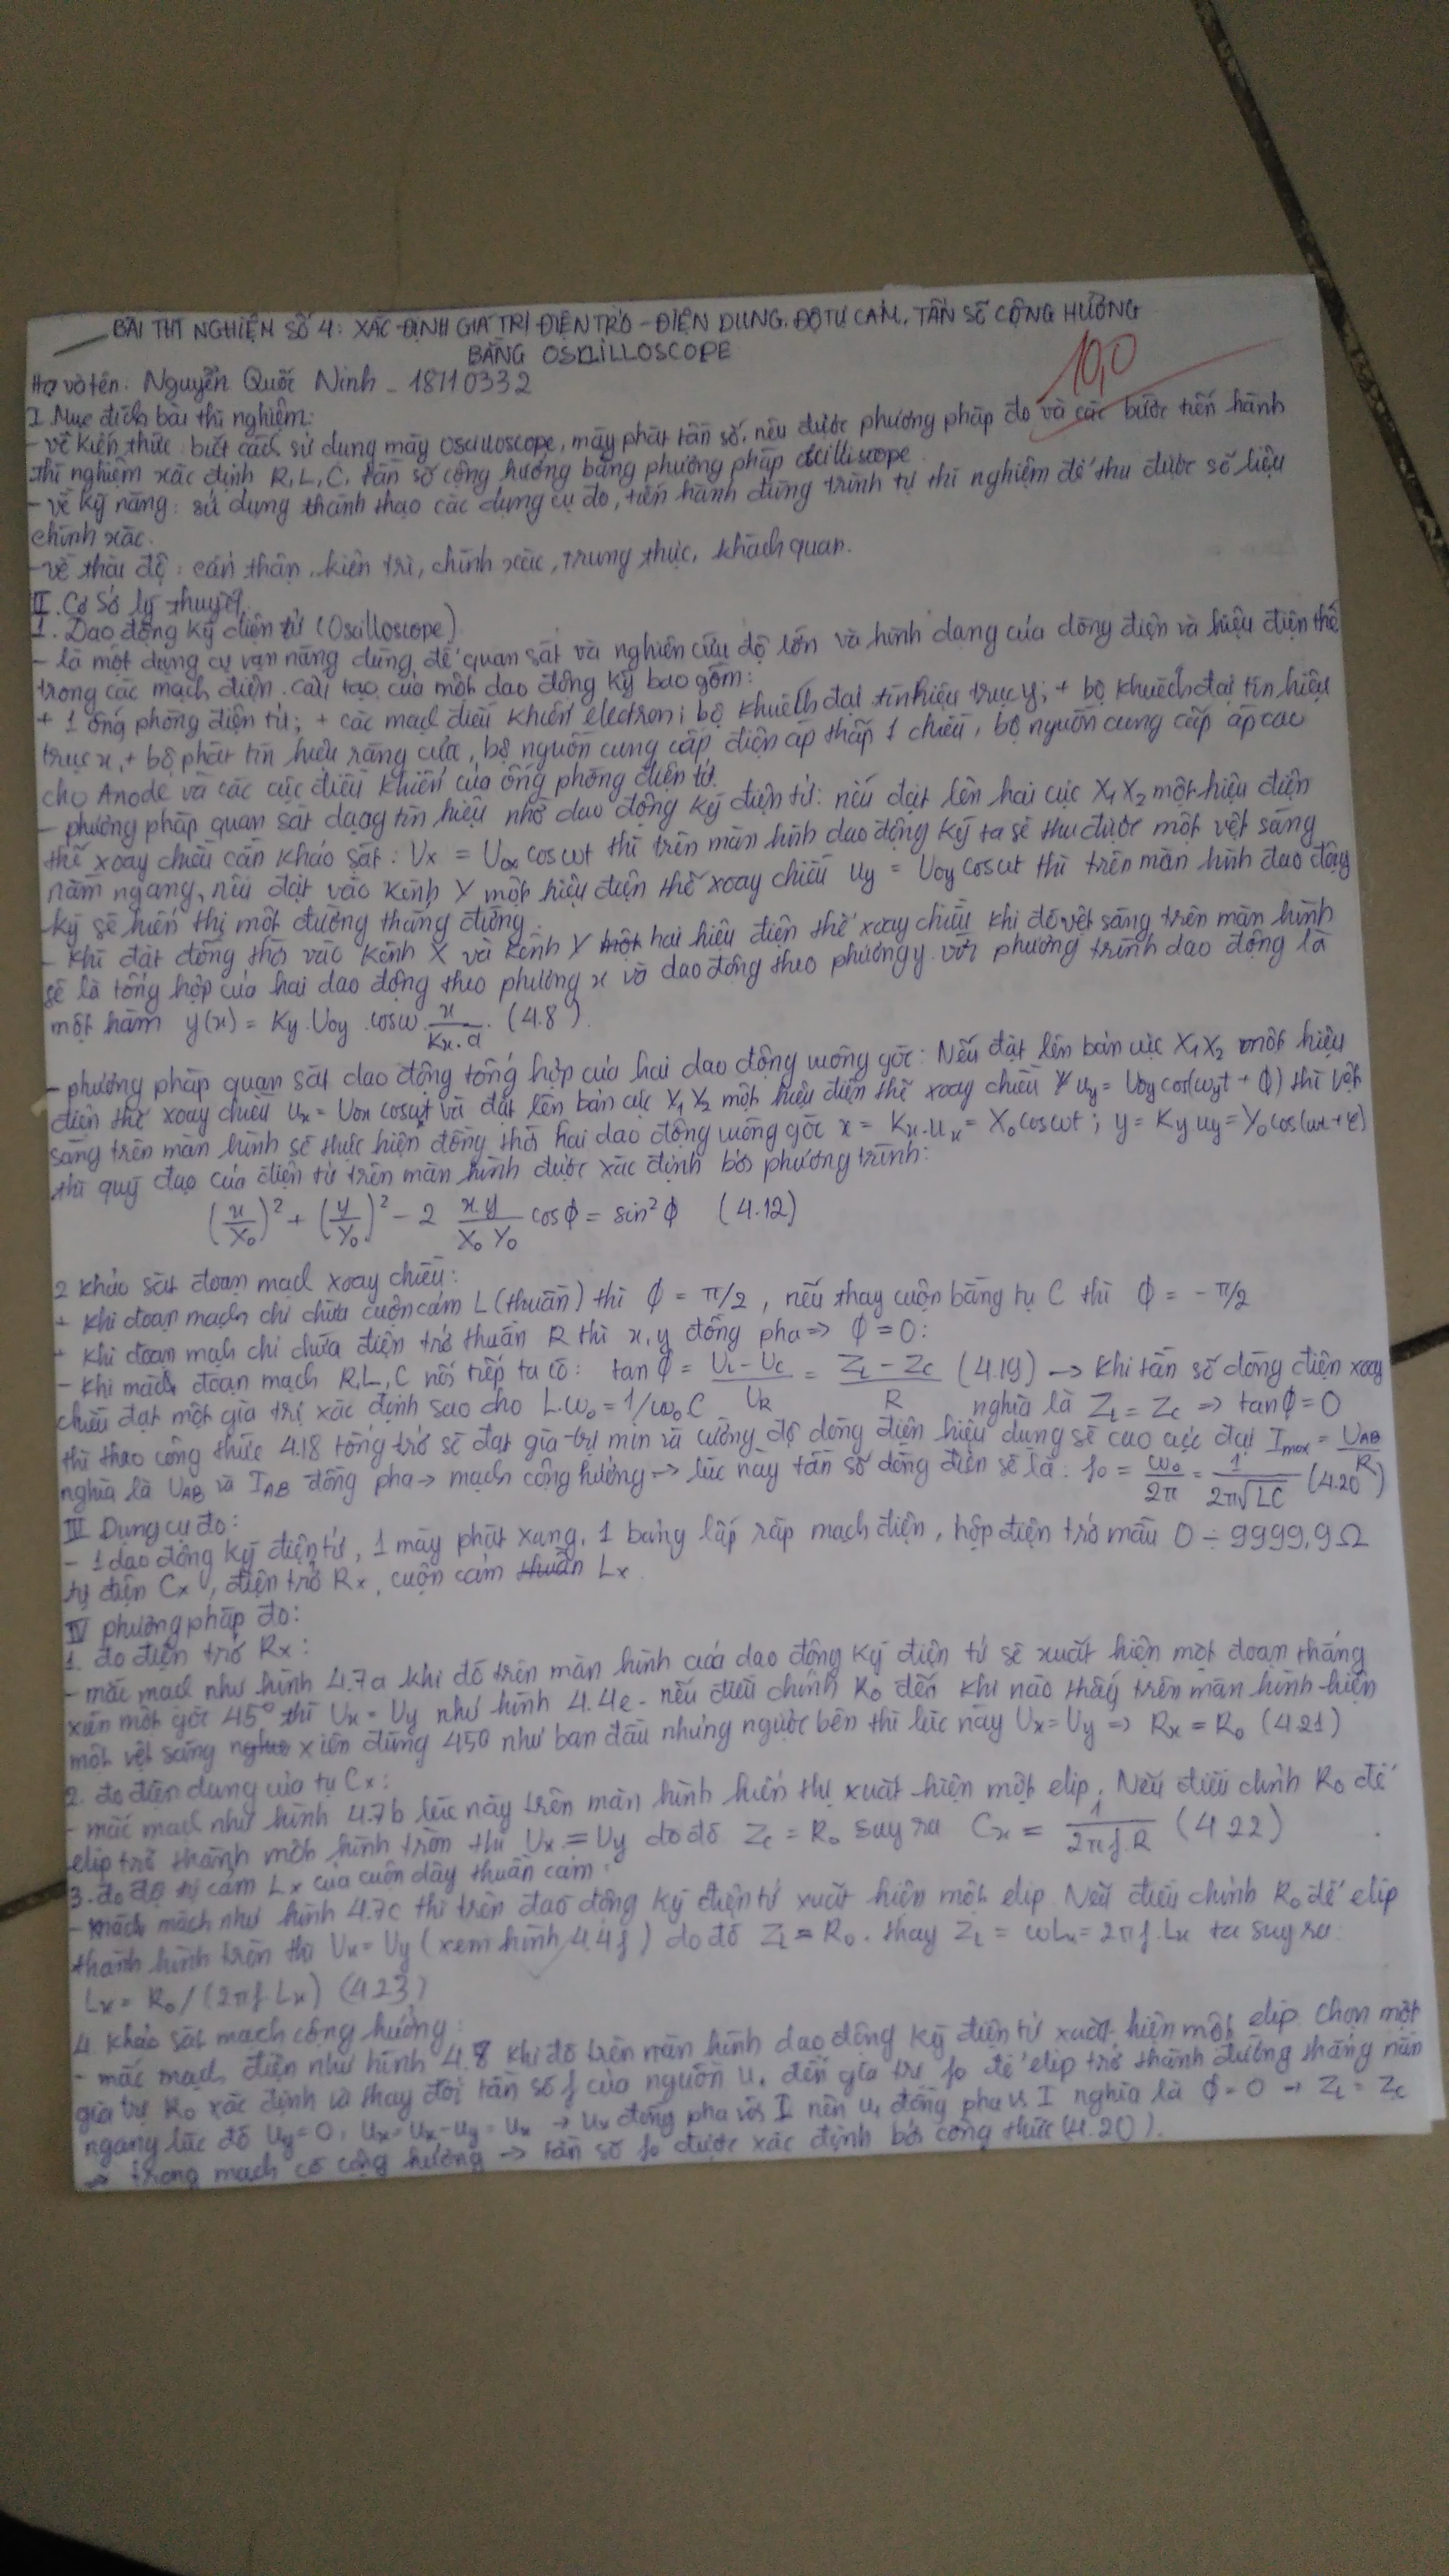 BÀI THÍ NGHIỆM SỐ 4: XÁC ĐỊNH GIÁ TRỊ ĐIỆN TRỞ - ĐIỆN DUNG, ĐỘ TỰ CẢM, TẦN SỐ CỘNG HƯỞNG
BẰNG OSCILLOSCOPE
10,0
Họ và tên: Nguyễn Quốc Ninh - 18110332
I. Mục đích bài thí nghiệm:
- về kiến thức: biết cách sử dụng máy oscilloscope, máy phát tần số, nêu được phương pháp đo và các bước tiến hành
thí nghiệm xác định R, L, C, tần số cộng hưởng bằng phương pháp
- về kỹ năng: sử dụng thành thạo các dụng cụ đo, tiến hành đúng trình tự thí nghiệm để thu được số liệu
chính xác.
- về thái độ: cẩn thận, kiên trì, chính xác, trung thực, khách quan.
II. Cơ sở lý thuyết
1. Dao động ký điện tử (Oscilloscope)
- là một dụng cụ vạn năng dùng để quan sát và nghiên cứu độ lớn và hình dạng của dòng điện và hiệu điện thế
trong các mạch điện. cấu tạo của một dao động ký bao gồm:
+ 1 ống phóng điện tử; + các mạch điều khiển electron; bộ khuếch đại tín hiệu trục y; + bộ khuếch đại tín hiệu
trục x, + bộ phát tín hiệu răng cưa, bộ nguồn cung cấp điện áp thấp 1 chiều, bộ nguồn cung cấp áp cao
cho Anode và các cực điều khiển của ống phóng điện tử.
- phương pháp quan sát dạng tín hiệu nhờ dao động ký điện tử: nếu đặt lên hai cực X₁X₂ một hiệu điện
thế xoay chiều cần khảo sát: Ux = U₀x cosωt thì trên màn hình dao động ký ta sẽ thu được một vệt sáng
nằm ngang, nếu đặt vào kênh Y một hiệu điện thế xoay chiều Uy = U₀y cosωt thì trên màn hình dao động
ký sẽ hiển thị một đường thẳng đứng.
- Khi đặt đồng thời vào kênh X và kênh Y hai hiệu điện thế xoay chiều khi đó vệt sáng trên màn hình
sẽ là tổng hợp của hai dao động theo phương x và dao động theo phương y với phương trình dao động là
một hàm y(x) = Ky.U₀y.cosω x/(Kx.a). (4.8)
- phương pháp quan sát dao động tổng hợp của hai dao động vuông góc: Nếu đặt lên bản cực X₁X₂ một hiệu
điện thế xoay chiều Ux = U₀x cosωt và đặt lên bản cực Y₁Y₂ một hiệu điện thế xoay chiều uy = U₀y cos(ωyt + ϕ) thì vệt
sáng trên màn hình sẽ thực hiện đồng thời hai dao động vuông góc x = Kx.ux = X₀cosωt; y = Ky uy = Y₀cos(ωt+φ)
thì quỹ đạo của điện tử trên màn hình được xác định bởi phương trình:
(x/X₀)² + (y/Y₀)² - 2 xy/(X₀Y₀) cosϕ = sin²ϕ (4.12)
2 khảo sát đoạn mạch xoay chiều:
+ khi đoạn mạch chỉ chứa cuộn cảm L (thuần) thì ϕ = π/2, nếu thay cuộn bằng tụ C thì ϕ = -π/2
+ khi đoạn mạch chỉ chứa điện trở thuần R thì x, y đồng pha => ϕ = 0:
- khi mạch đoạn mạch R, L, C nối tiếp ta có: tanϕ = (UL - UC)/UR = (ZL - ZC)/R (4.19) → khi tần số dòng điện xoay
chiều đạt một giá trị xác định sao cho L.ω₀ = 1/ω₀C nghĩa là ZL = ZC => tanϕ = 0
thì theo công thức 4.18 tổng trở sẽ đạt giá trị min và cường độ dòng điện hiệu dụng sẽ cao cực đại Imax = UAB/R
nghĩa là UAB và IAB đồng pha → mạch cộng hưởng → lúc này tần số dòng điện sẽ là: f₀ = ω₀/2π = 1/(2π√LC) (4.20)
III Dụng cụ đo:
- 1 dao động ký điện tử, 1 máy phát xung, 1 bảng lắp ráp mạch điện, hộp điện trở mẫu 0 ÷ 9999,9Ω
tụ điện Cx, điện trở Rx, cuộn cảm Lx.
IV phương pháp đo:
1. đo điện trở Rx:
- mắc mạch như hình 4.7a khi đó trên màn hình của dao động ký điện tử sẽ xuất hiện một đoạn thẳng
xiên một góc 45° thì Ux = Uy như hình 4.4e. nếu điều chỉnh R₀ đến khi nào thấy trên màn hình hiện
một vệt sáng xiên đúng 450 như ban đầu nhưng ngược bên thì lúc này Ux = Uy => Rx = R₀ (4.21)
2. đo điện dung của tụ Cx:
- mắc mạch như hình 4.7b lúc này trên màn hình hiển thị xuất hiện một elip. Nếu điều chỉnh R₀ để
elip trở thành một hình tròn thì Ux = Uy do đó Zc = R₀ suy ra Cx = 1/(2πf.R) (4.22)
3. đo độ tự cảm Lx của cuộn dây thuần cảm:
- mắc mạch như hình 4.7c thì trên dao động ký điện tử xuất hiện một elip. Nếu điều chỉnh R₀ để elip
thành hình tròn thì Ux = Uy (xem hình 4.4f) do đó ZL = R₀. thay ZL = ωLx = 2πf.Lx ta suy ra:
Lx = R₀/(2πf.Lx) (4.23)
4. khảo sát mạch cộng hưởng:
- mắc mạch điện như hình 4.8 khi đó trên màn hình dao động ký điện tử xuất hiện một elip. Chọn một
giá trị R₀ xác định và thay đổi tần số f của nguồn u, đến giá trị f₀ để elip trở thành đường thẳng nằm
ngang lúc đó Uy = 0, Ux = Ux - Uy = Ux → Ux đồng pha với I nên u, đồng pha vs I nghĩa là ϕ = 0 → ZL = Zc
→ trong mạch có cộng hưởng → tần số f₀ được xác định bởi công thức (4.20).